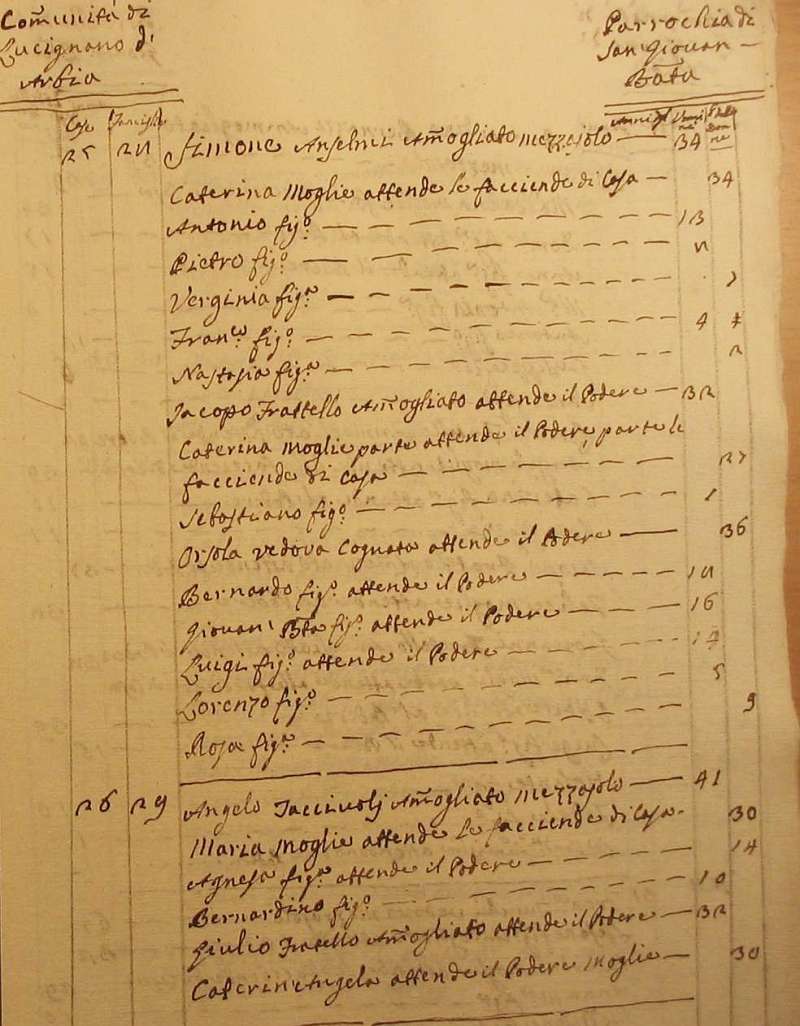 Comunità di
Lucignano d'
Arbia
Parrochia di
San Giovan
Bata
Case Famiglie
25 Simone Anselmi Amogliato mezzajolo 34
Caterina Moglie attende le facciende di Casa 34
Antonio figo 13
Pietro figo
Verginia figa
Franco figo 4
Nastasia figa 2
Jacopo Frattello Amogliato attende il Podere 32
Caterina Moglie parte attende il Podere, parte le
facciende di Casa 27
Sebastiano figo 1
Orsola vedova Cognata attende il Podere 36
Bernardo figo attende il Podere
Giovan Bta figo attende il Podere 16
Luigi figo attende il Podere
Lorenzo figo 5
Rosa figa 9
26 29 Angelo Amogliato Mezzajolo 41
Maria Moglie attende le faccende di Casa 30
Agnesa figa attende il Podere 14
Bernardino figo 10
Giulio Fratello Amogliato attende il Podere 32
Caterin'Angela attende il Podere Moglie 30